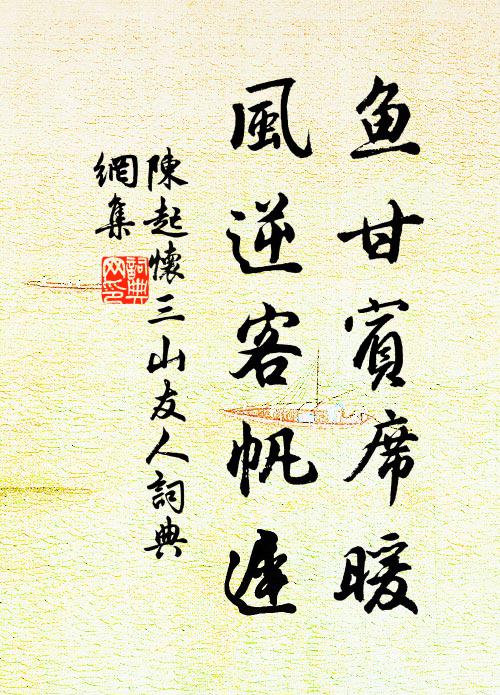 魚甘賓席暖
風逆客帆遲
陳起懷三山友人詞典
網集
詞典
网印